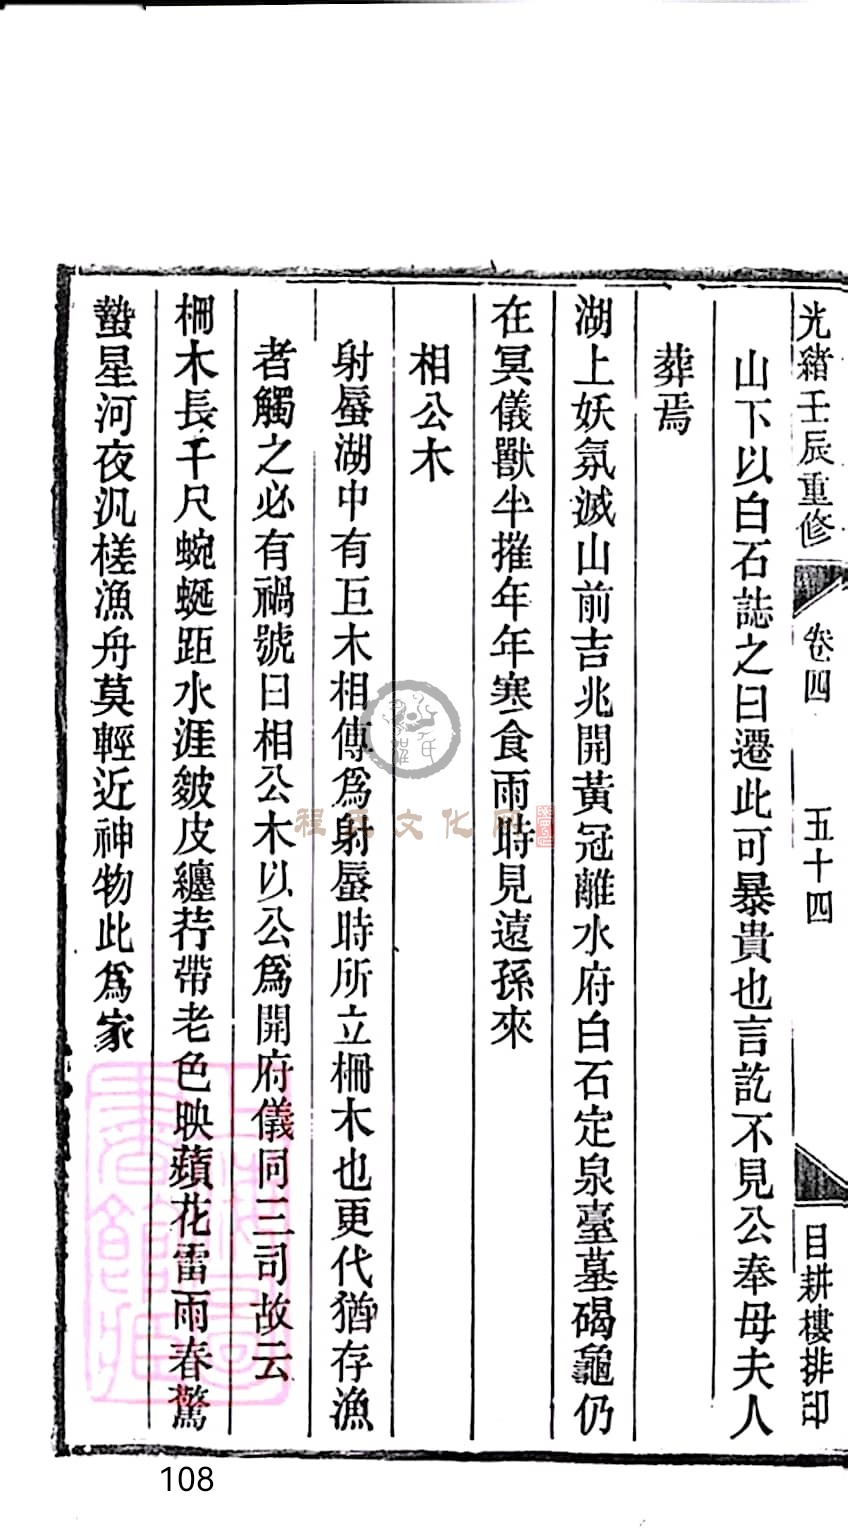 光緒壬辰重修
卷四
五十四
目耕樓排印
山下以白石誌之曰遷此可暴貴也言訖不見公奉母夫人
葬焉
湖上妖氛滅山前吉兆開黃冠離水府白石定泉臺墓碣龜仍
在冥儀獸半摧年年寒食雨時見遠孫來
相公木
射蜃湖中有巨木相傳爲射蜃時所立柵木也更代猶存漁
者觸之必有禍號曰相公木以公爲開府儀同三司故云
柵木長千尺蜿蜒距水涯皴皮纏荇帶老色映蘋花雷雨春驚
蟄星河夜汎槎漁舟莫輕近神物此爲家
程氏文化网
108